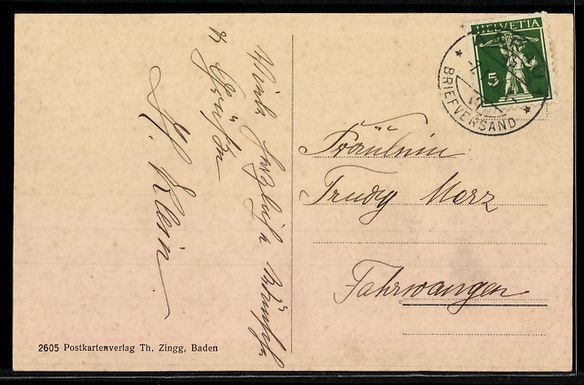 HELVETIA
5
BRIEFVERSAND
Fräulein
Trudy Merz
Fahrwangen
Viele herzliche
& Grüsse
H. Klein.
2605 Postkartenverlag Th. Zingg, Baden